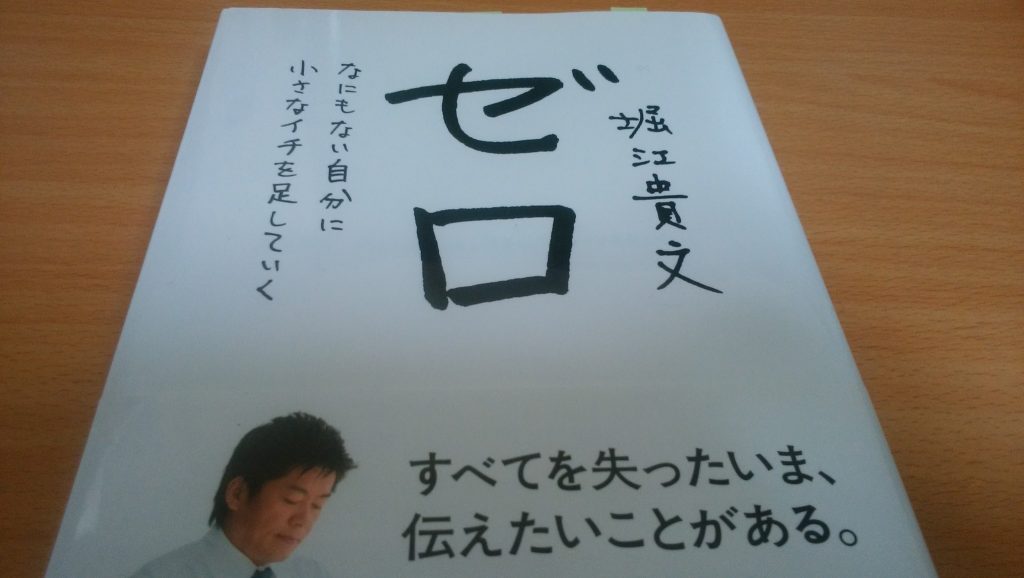 堀江貴文
ゼロ
なにもない自分に
小さなイチを足していく
すべてを失ったいま、
伝えたいことがある。